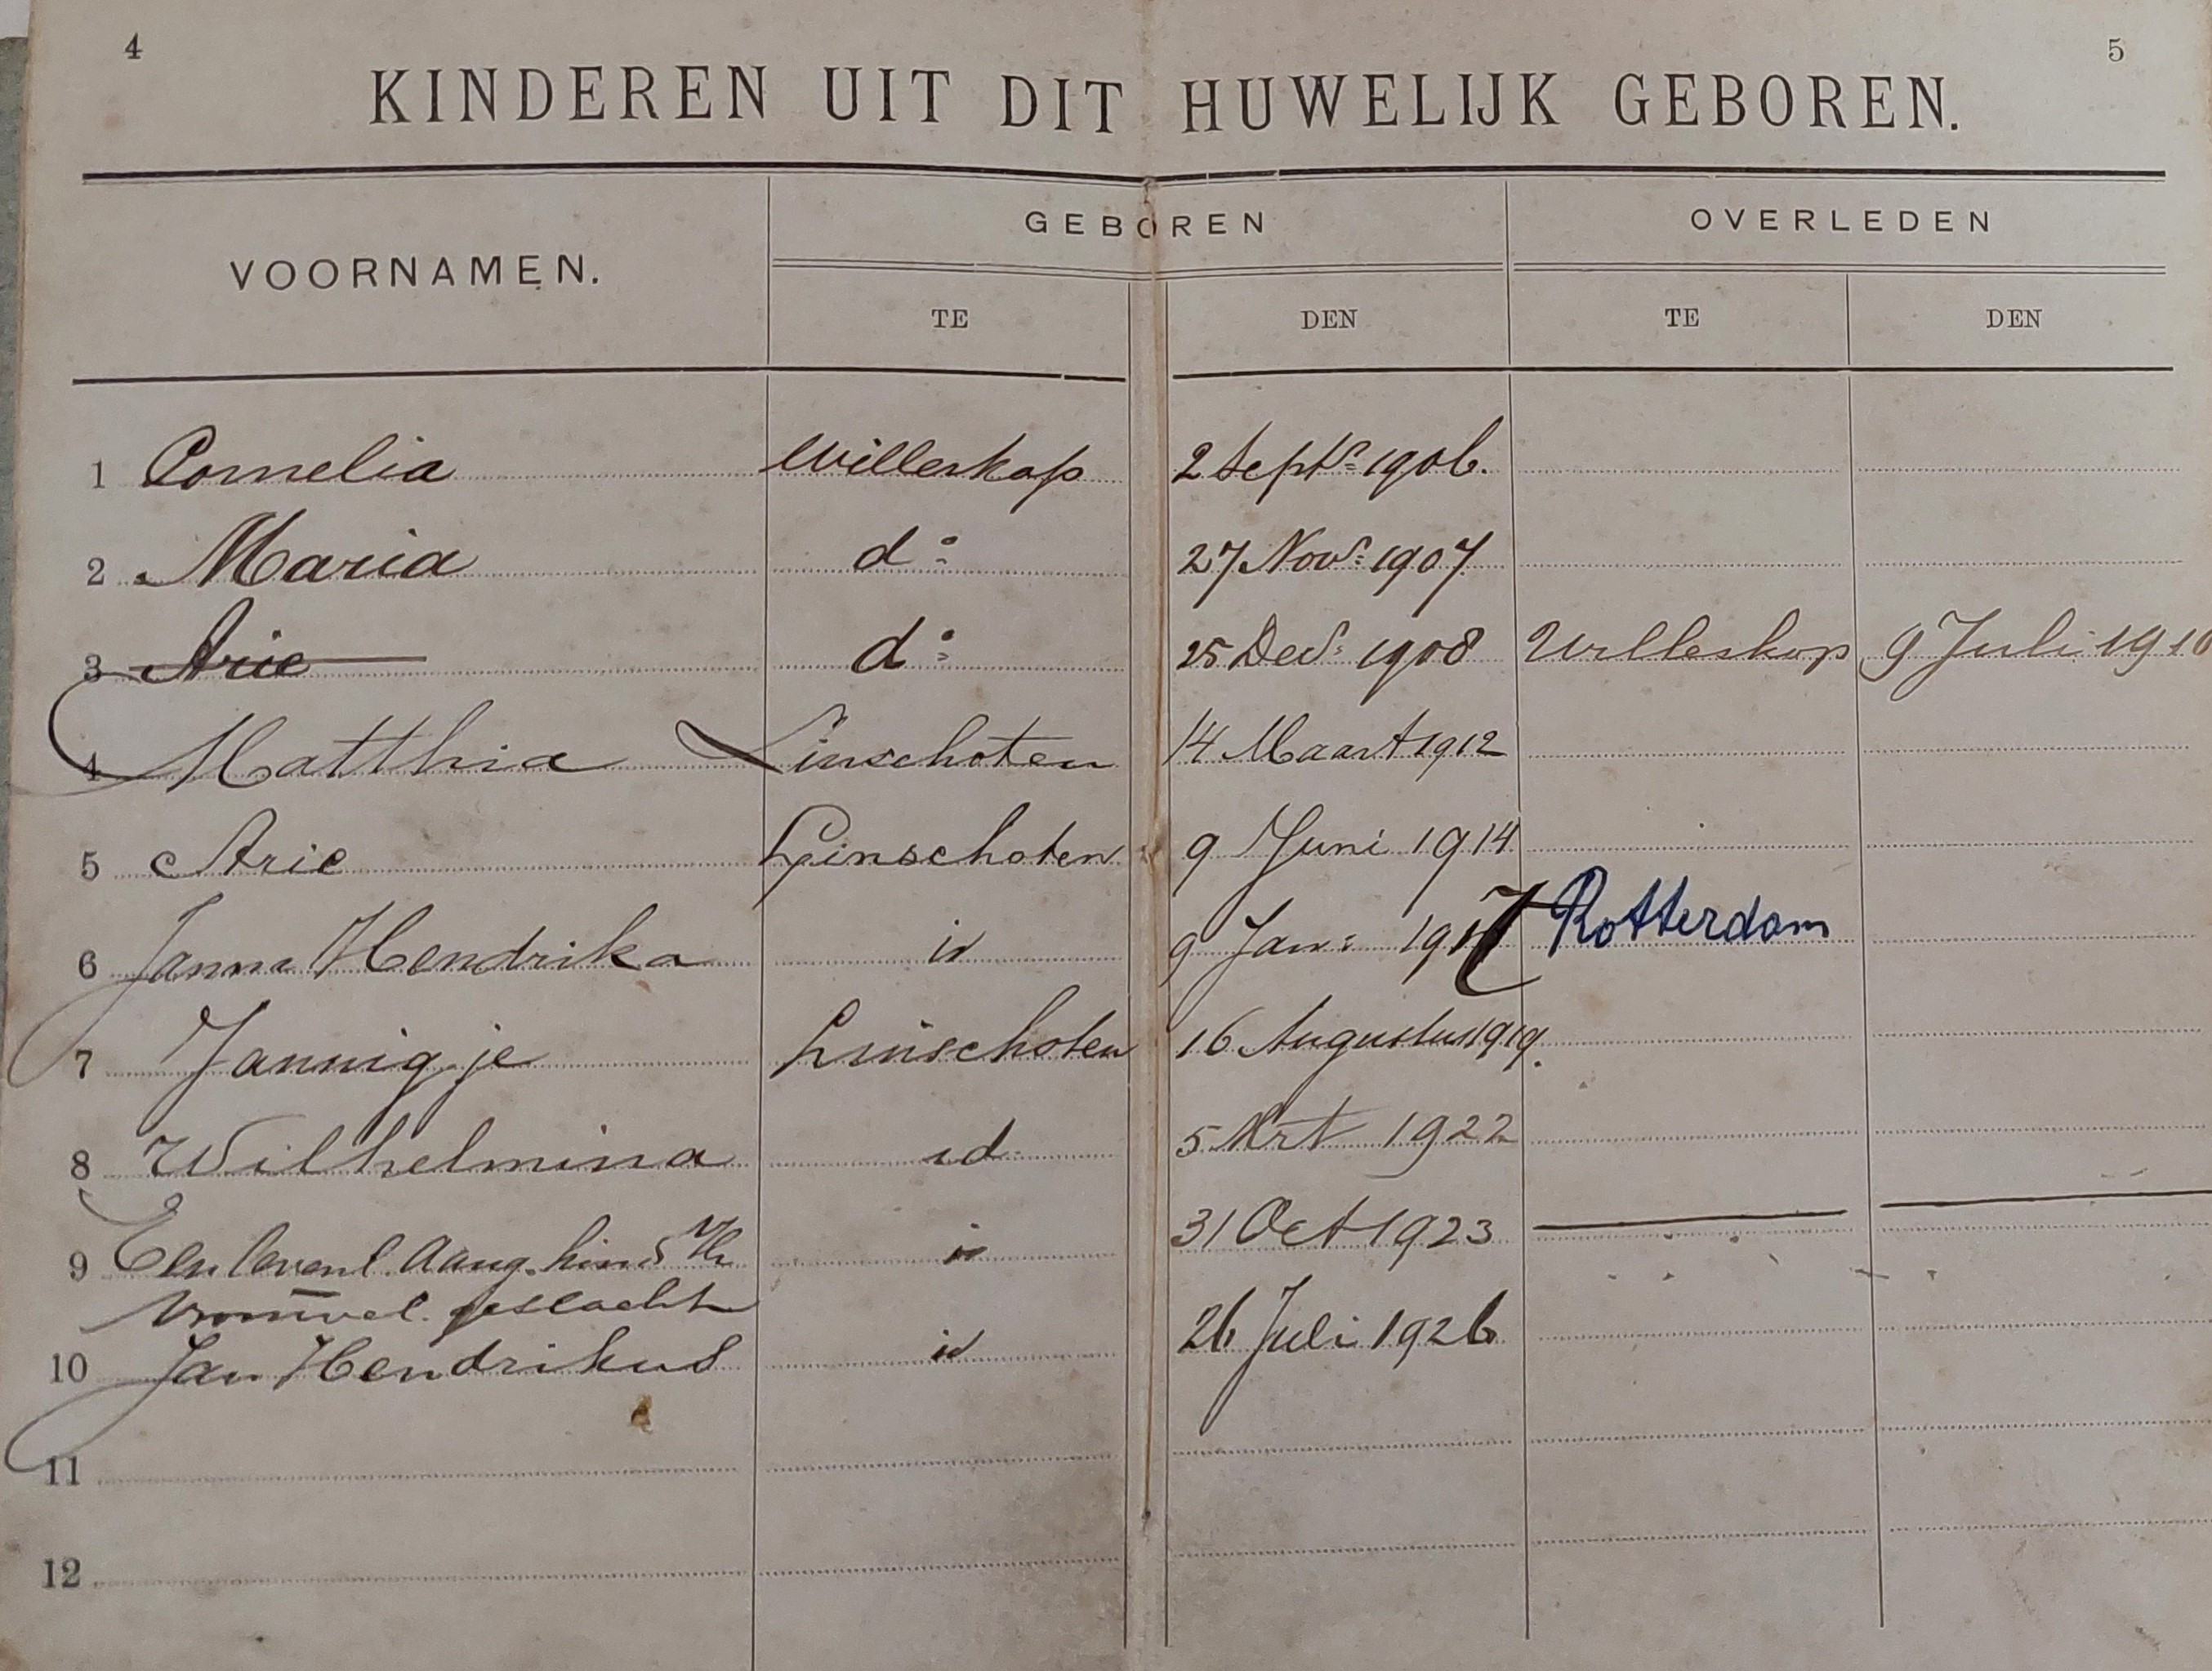 4 5
KINDEREN UIT DIT HUWELIJK GEBOREN.
VOORNAMEN. GEBOREN OVERLEDEN
TE DEN TE DEN
1 Cornelia Willeskop 2 Septr 1906.
2 Maria do: 27 Novr: 1907.
3 Arie do: 25 Decr: 1908 Willeskop 9 Juli 1910
4 Matthia Linschoten 14 Maart 1912
5 Arie Linschoten 9 Juni 1914
6 Janna Hendrika id 9 Jan: 1917 Rotterdam
7 Jannigje Linschoten 16 Augustus 1919.
8 Wilhelmina id 5 Mrt 1922
9 Een levenl. aang. kind v/h id 31 Oct 1923
vrouwel. geslacht
10 Jan Hendrikus id 26 Juli 1926
11
12